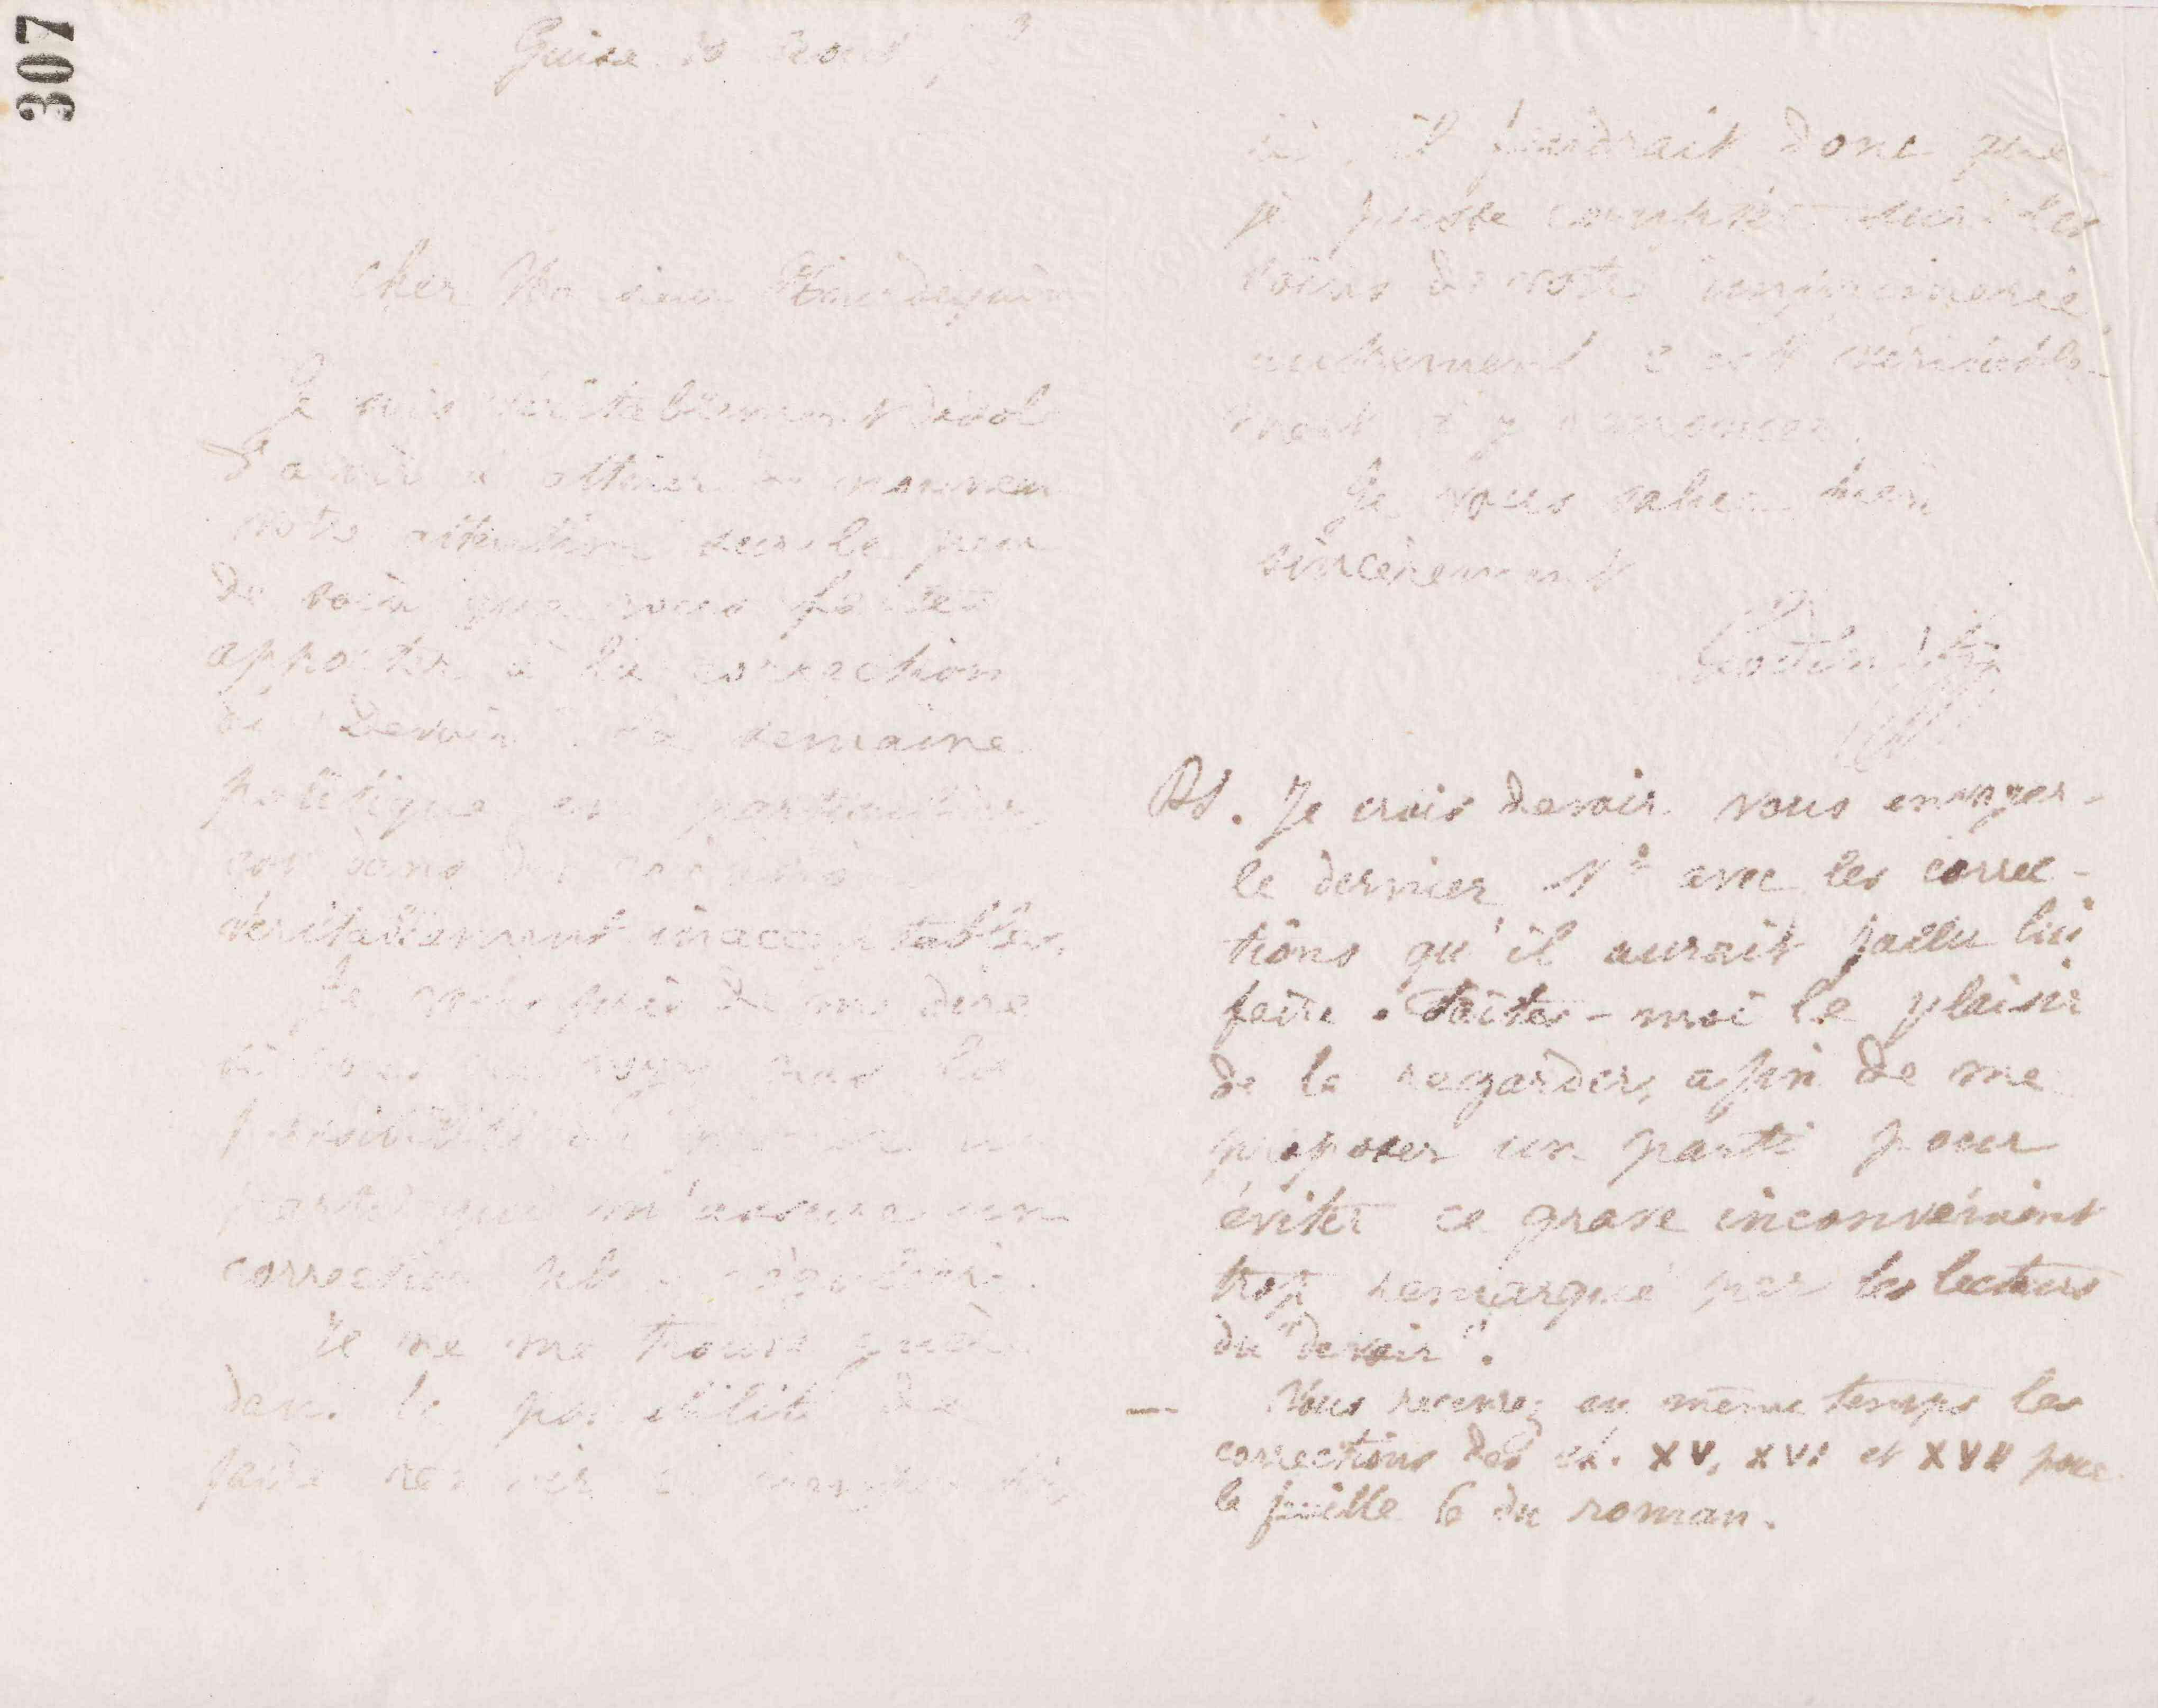 307
Guise
Cher Monsieur
Je suis véritablement désolé
d'avoir à attirer de nouveau
votre attention sur le peu
de soin que vous faites
apporter à la correction
du Devoir. La semaine
politique en particulier
est dans des
véritablement inacceptables.
Je vous prie de me dire
si vous ne voyez pas la
possibilité de prendre un
parti qui m'assure une
correction plus régulière.
Je ne me trouve guère
dans la possibilité de
faire
ici, il faudrait donc que
je puisse compter sur les
soins de votre imprimerie,
autrement c'est véritable-
ment à y renoncer.
Je vous salue bien
sincèrement
Godin
PS. Je crois devoir vous envoyer
le dernier N° avec les correc-
tions qu'il aurait fallu lui
faire. Faites-moi le plaisir
de le regarder, afin de me
proposer un parti pour
éviter ce grave inconvénient
trop remarqué par les lecteurs
du "devoir".
— Vous recevrez en même temps les
corrections des ch. XV, XVI et XVII pour
la feuille 6 du roman.